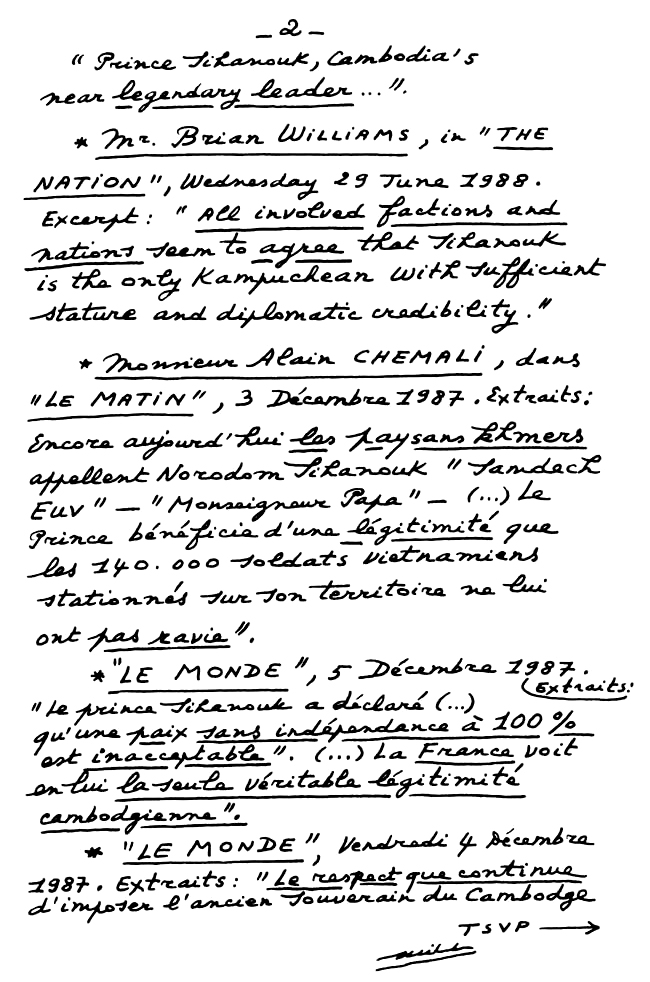 - 2 -
" Prince Sihanouk, Cambodia's
near legendary leader ... ".
* Mr. Brian WILLIAMS, in " THE
NATION ", Wednesday 29 June 1988.
Excerpt : " All involved factions and
nations seem to agree that Sihanouk
is the only Kampuchean with sufficient
stature and diplomatic credibility. "
* Monsieur Alain CHEMALI, dans
"LE MATIN", 3 Décembre 1987. Extraits:
Encore aujourd'hui les paysans khmers
appellent Norodom Sihanouk " Samdech
Euv " — " Monseigneur Papa " — (...) Le
Prince bénéficie d'une légitimité que
les 140.000 soldats vietnamiens
stationnés sur son territoire ne lui
ont pas ravie ".
* "LE MONDE ", 5 Décembre 1987.
Extraits:
" Le prince Sihanouk a déclaré (...)
qu'une paix sans indépendance à 100 %
est inacceptable ". (...) La France voit
en lui la seule véritable légitimité
cambodgienne ".
* "LE MONDE ", Vendredi 4 Décembre
1987. Extraits : " Le respect que continue
d'imposer l'ancien Souverain du Cambodge
TSVP →